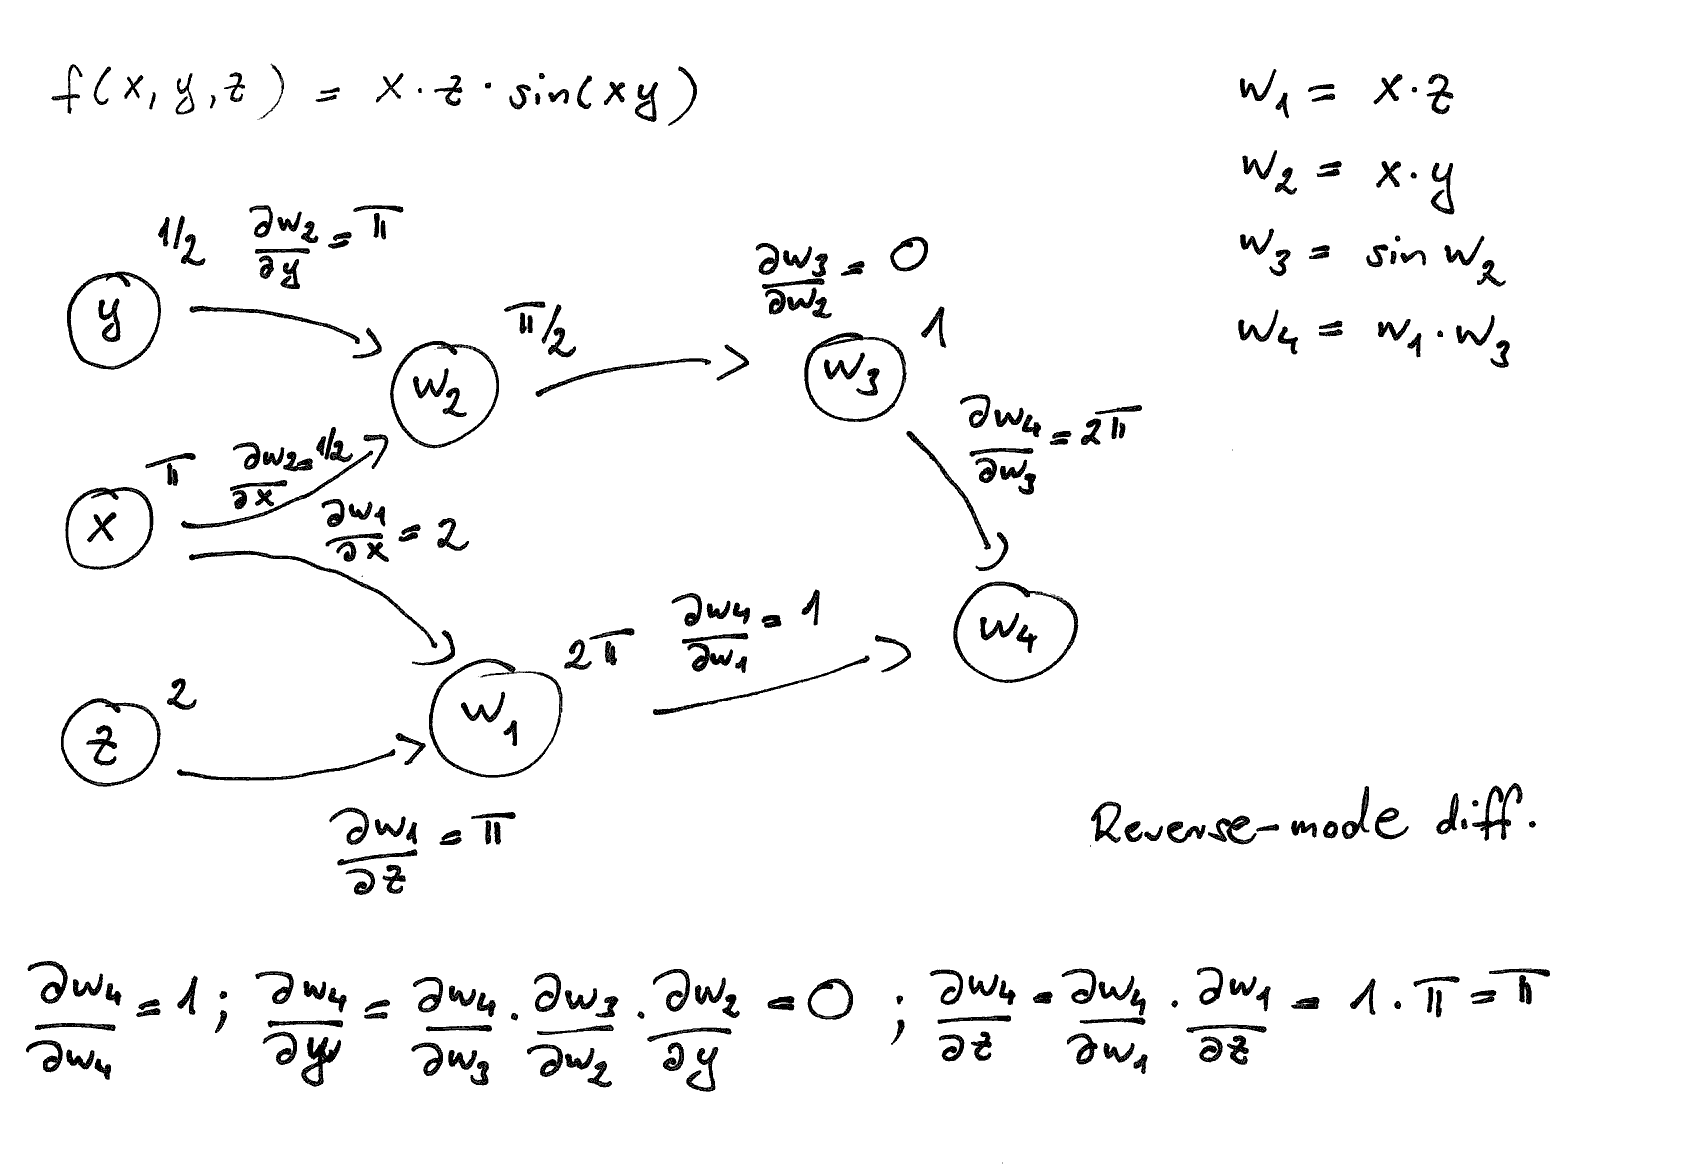 f(x, y, z) = x · z · sin(xy)
w₁ = x · z
w₂ = x · y
w₃ = sin w₂
w₄ = w₁ · w₃
1/2
∂w₂/∂y = π
y
π/2
∂w₃/∂w₂ = 0
1
w₂
w₃
∂w₄/∂w₃ = 2π
π
∂w₂/∂x = 1/2
x
∂w₁/∂x = 2
2π
∂w₄/∂w₁ = 1
w₄
2
z
w₁
∂w₁/∂z = π
Reverse-mode diff.
∂w₄/∂w₄ = 1 ; ∂w₄/∂y = ∂w₄/∂w₃ · ∂w₃/∂w₂ · ∂w₂/∂y = 0 ; ∂w₄/∂z = ∂w₄/∂w₁ · ∂w₁/∂z = 1 · π = π